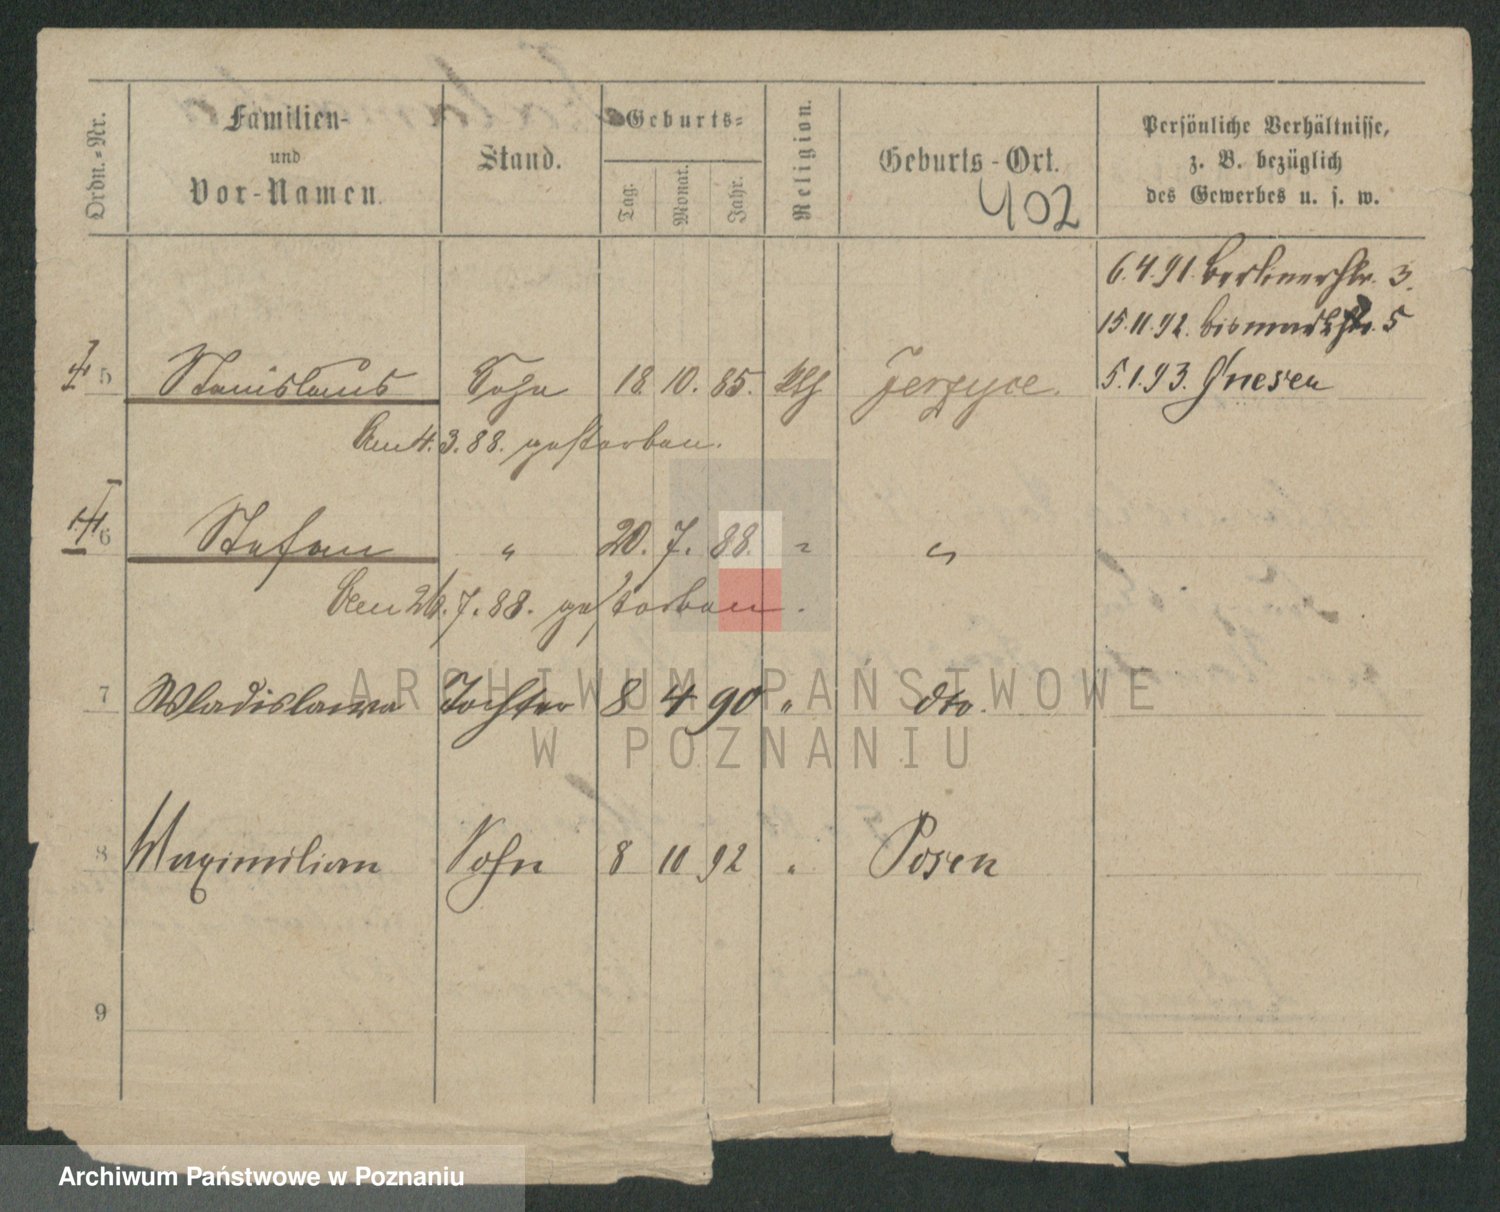 Ordn.-Nr. Familien- und Vor-Namen. Stand. Geburts- Tag. Monat. Jahr. Religion. Geburts-Ort. Persönliche Verhältnisse, z. B. bezüglich des Gewerbes u. s. w.
402
6.4.91. Berlinerstr. 3.
15.11.92. Bismarckstr. 5
5 Stanislaus Sohn 18. 10. 85. kth Jerzyce. 5.1.93. Gnesen
Am 4.3.88. gestorben.
6 Stefan " 20. 7. 88. " "
Am 26.7.88. gestorben.
7 Wladislawa Tochter 8 4 90 " dto.
8 Maximilian Sohn 8 10 92 " Posen
9
ARCHIWUM PAŃSTWOWE
W POZNANIU
Archiwum Państwowe w Poznaniu